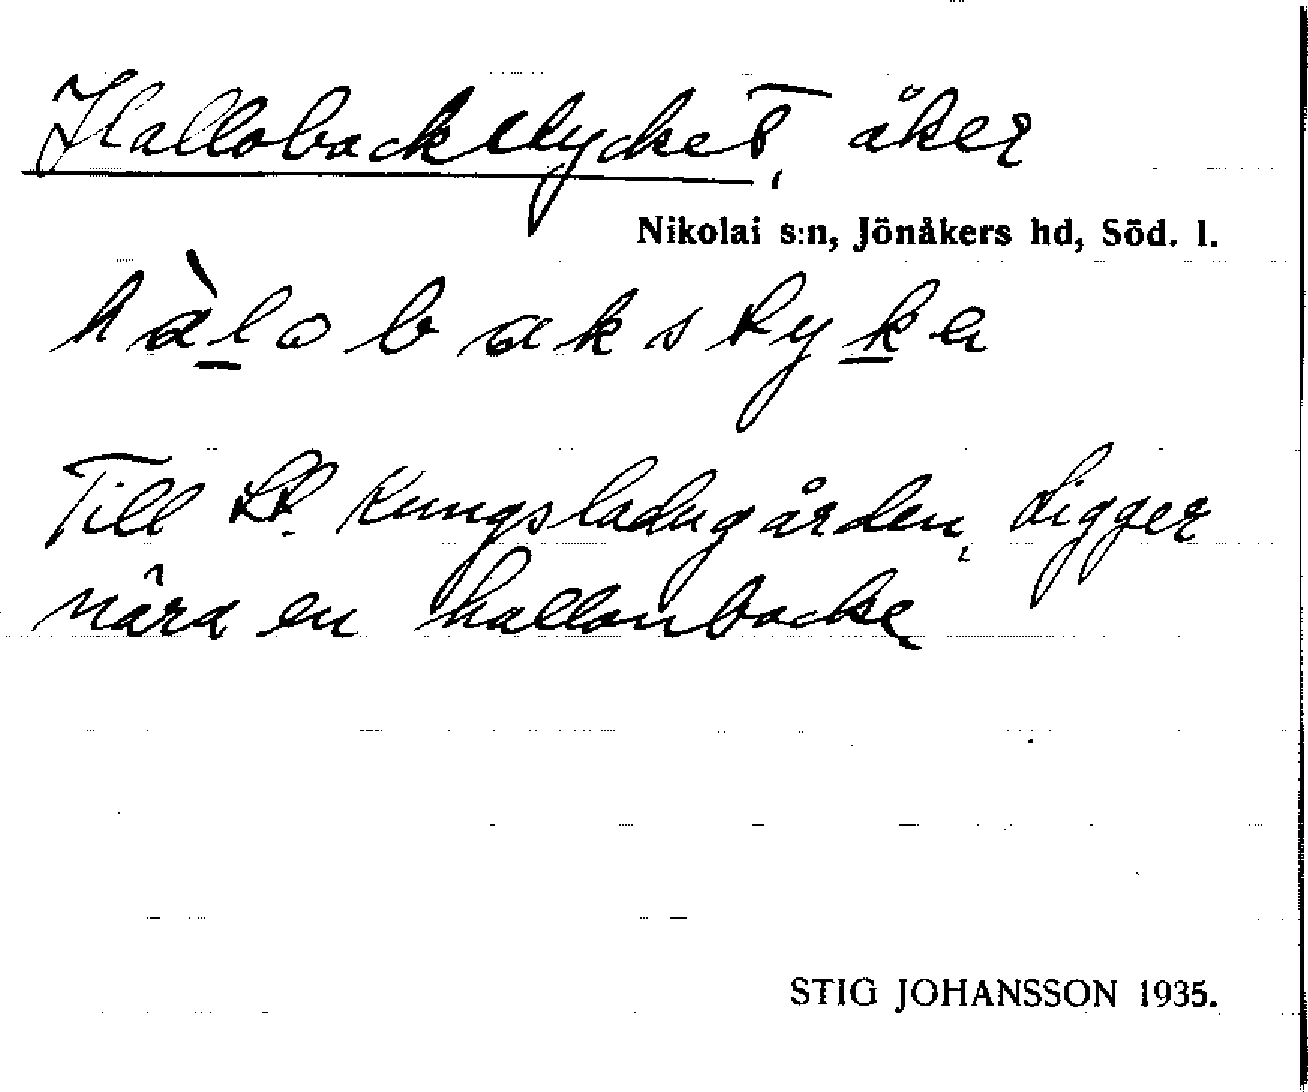 Hallobackstycket, åker
Nikolai s:n, Jönåkers hd, Söd. l.
hàlobakstyka
Till St. Kungsladugården, Ligger
nära en hallonbacke
STIG JOHANSSON 1935.